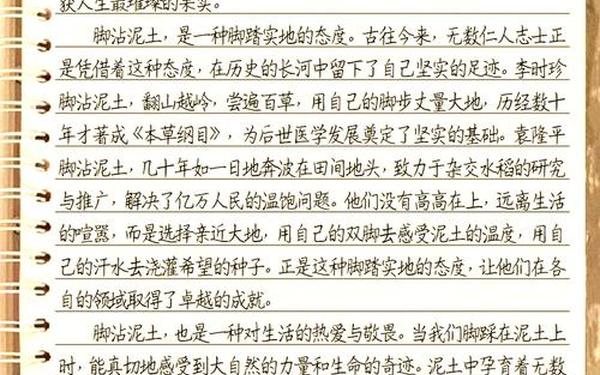 获人生最璀璨的果实。
脚沾泥土，是一种脚踏实地的态度。古往今来，无数仁人志士正
是凭借着这种态度，在历史的长河中留下了自己坚实的足迹。李时珍
脚沾泥土，翻山越岭，尝遍百草，用自己的脚步丈量大地，历经数十
年才著成《本草纲目》，为后世医学发展奠定了坚实的基础。袁隆平
脚沾泥土，几十年如一日地奔波在田间地头，致力于杂交水稻的研究
与推广，解决了亿万人民的温饱问题。他们没有高高在上，远离生活
的喧嚣，而是选择亲近大地，用自己的双脚去感受泥土的温度，用自
己的汗水去浇灌希望的种子。正是这种脚踏实地的态度，让他们在各
自的领域取得了卓越的成就。
脚沾泥土，也是一种对生活的热爱与敬畏。当我们脚踩在泥土上
时，能真切地感受到大自然的力量和生命的奇迹。泥土中孕育着无数